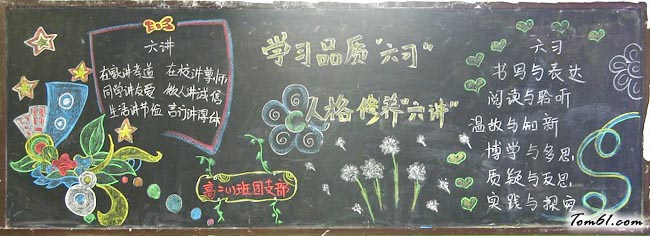 六讲
在家讲孝道 在校讲尊师
同学讲友爱 做人讲诚信
生活讲节俭 言行讲得体
学习品质“六习”
人格修养“六讲”
高二(1)班团支部
六习
书写与表达
阅读与聆听
温故与知新
博学与多思
质疑与反思
实践与探究
Tom61.com